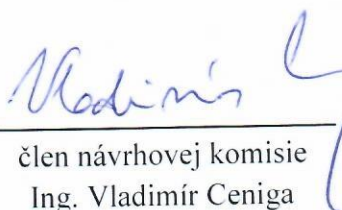 Vladimír C
člen návrhovej komisie
Ing. Vladimír Ceniga